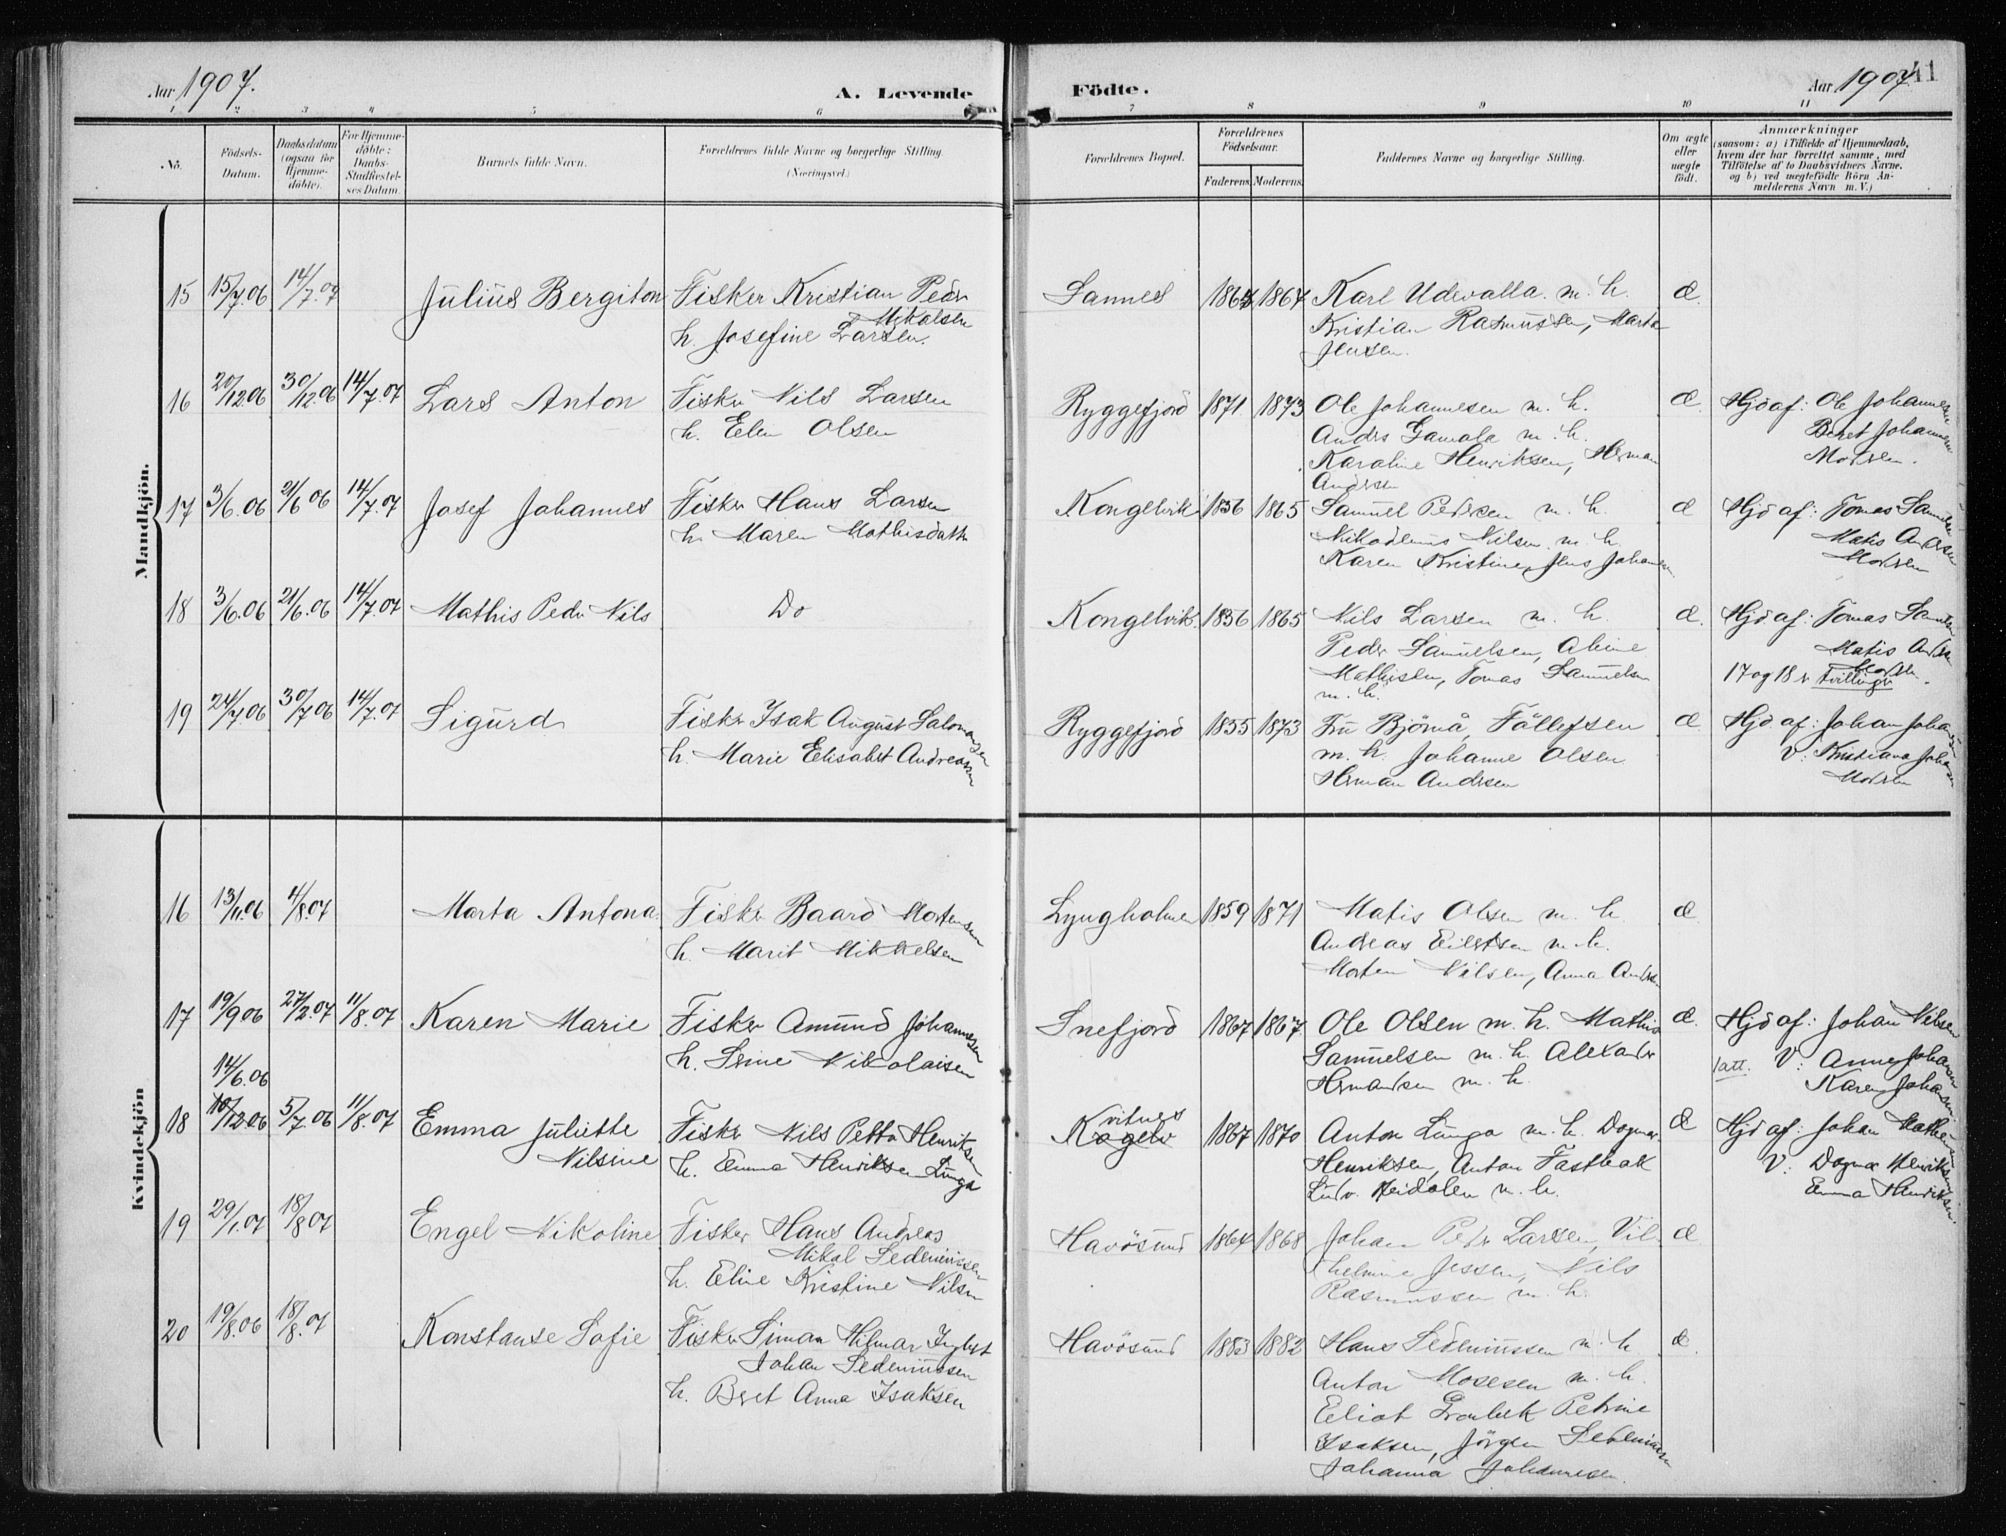 Aar 1907.
A. Levende
Födte.
Aar 1907.
41
1 2 3 4 5 6 7 8 9 10 11
No.
Födsels-
Datum.
Daabsdatum
(ogsaa for
Hjemme-
döbte).
For Hjemme-
döbte:
Daabs-
Stadfæstel-
ses Datum.
Barnets fulde Navn.
Forældrenes fulde Navne og borgerlige Stilling.
(Næringsvei.)
Forældrenes Bopæl.
Forældrenes
Födselsaar.
Faderens. Moderens.
Faddernes Navne og borgerlige Stilling.
Om ægte
eller
uægte
födt.
Anmærkninger
(saasom: a) i Tilfælde af Hjemmedaab,
hvem der har forrettet samme, med
Tilföielse af to Daabsvidners Navne.
og b) ved uægtefödte Börn An-
melderens Navn m. V.)
Mandkjön.
15 15/7.06 14/7.07 Julius Bergiton Fisker Kristian Peder
Mikalsen
h. Josefine Larsen.
Sannes 1867 Karl Udevalla. m. h. æ.
Kristian Rasmussen, Marta
Jensen.
16 20/12.06 30/12.06 14/7.07 Lars Anton Fisker Nils Larsen
h. Elen Olsen
Ryggefjord 1871 1873 Ole Johannesen m. h. æ. Hjd af: Ole Johannesen
Anders Gamola m. h. Beret Johannesen
Karoline Henriksen, Herman Moderen.
Andersen
17 3/6.06 21/6 06 14/7.07 Josef Johannes Fisker Hans Larsen
h. Maren Mathisdatter
Kongelvik 1856 1865 Samuel Pedersen m. h. æ Hjd af: Tomas Samuelsen
Nikodemus Nilsen m. h. Matis Andersen
Karen Kristine, Jens Johansen Moderen
18 3/6.06 21/6.06 14/7.07 Mathis Peder Nils Do
Kongelvik. 1856 1865 Nils Larsen m. h. æ. Hjd af: Tomas Samuelsen
Peder Samuelsen, Aline Matis Andersen
Mathisen, Tomas Samuelsen Moderen.
m. h. 17 og 18 er tvillinger
19 24/7.06 30/7.06 14/7.07 Sigurd Fisker Isak August Salomonsen
h. Marie Elisabet Andreassen
Ryggefjord 1855 1873 Fru Björnå, Fällefsen æ. Hjd. af: Johan Johansen
m. h. Johanne Olsen V: Kristiane Johansen
Herman Andersen Moderen
Kvindekjön
16 13/11.06 4/8.07 Marta Antona Fisker Baard Mortensen
h. Marit Mikkelsen
Lyngholmen 1859 1871 Matis Olsen m. h. æ.
Andreas Eilertsen m. h.
Morten Nilsen, Anna Andersen
17 19/9 06 27/2.07 11/8.07 Karen Marie Fisker Amund Johannesen
h. Nikolaisen
Snefjord 1867 1867 Ole Olsen m. h. Mathis æ. Hjd af: Johan Nilsen
Samuelsen m. h. Alexander V: Anne Johansen
Hermansen m. h. Karen Johansen
14/6.06
18 10/12.06 5/7.06 11/8.07 Emma Juliette Fisker Nils Petter Henriksen
Nilsine h. Emma Henriksen Lunga
1867 1870 Anton Lunga m. h. Dagmar æ Hjd af: Johan
Henriksen, Anton V: Dagmar Henriksen
m. h. Emma Henriksen.
19 29/1.07 18/8 07 Engel Nikoline Fisker Hans Andreas
Mikal Sedeniussen
h. Eline Kristine Nilsen
Havösund 1864 1868 Johan Peder Larsen, Vil- æ.
helmine Jessen, Nils
Rasmussen m. h.
20 19/8.06 18/8.07 Konstanse Sofie Fisker Simon Hilmar
Johan Sedeniussen
h. Beret Anna Isaksen
Havösund 1883 1882 Hans Sedeniussen m. h. æ.
Anton Mosesen m. h.
Petrine
Isaksen, Jörgen Sedeniussen
Johanna Johannesen.